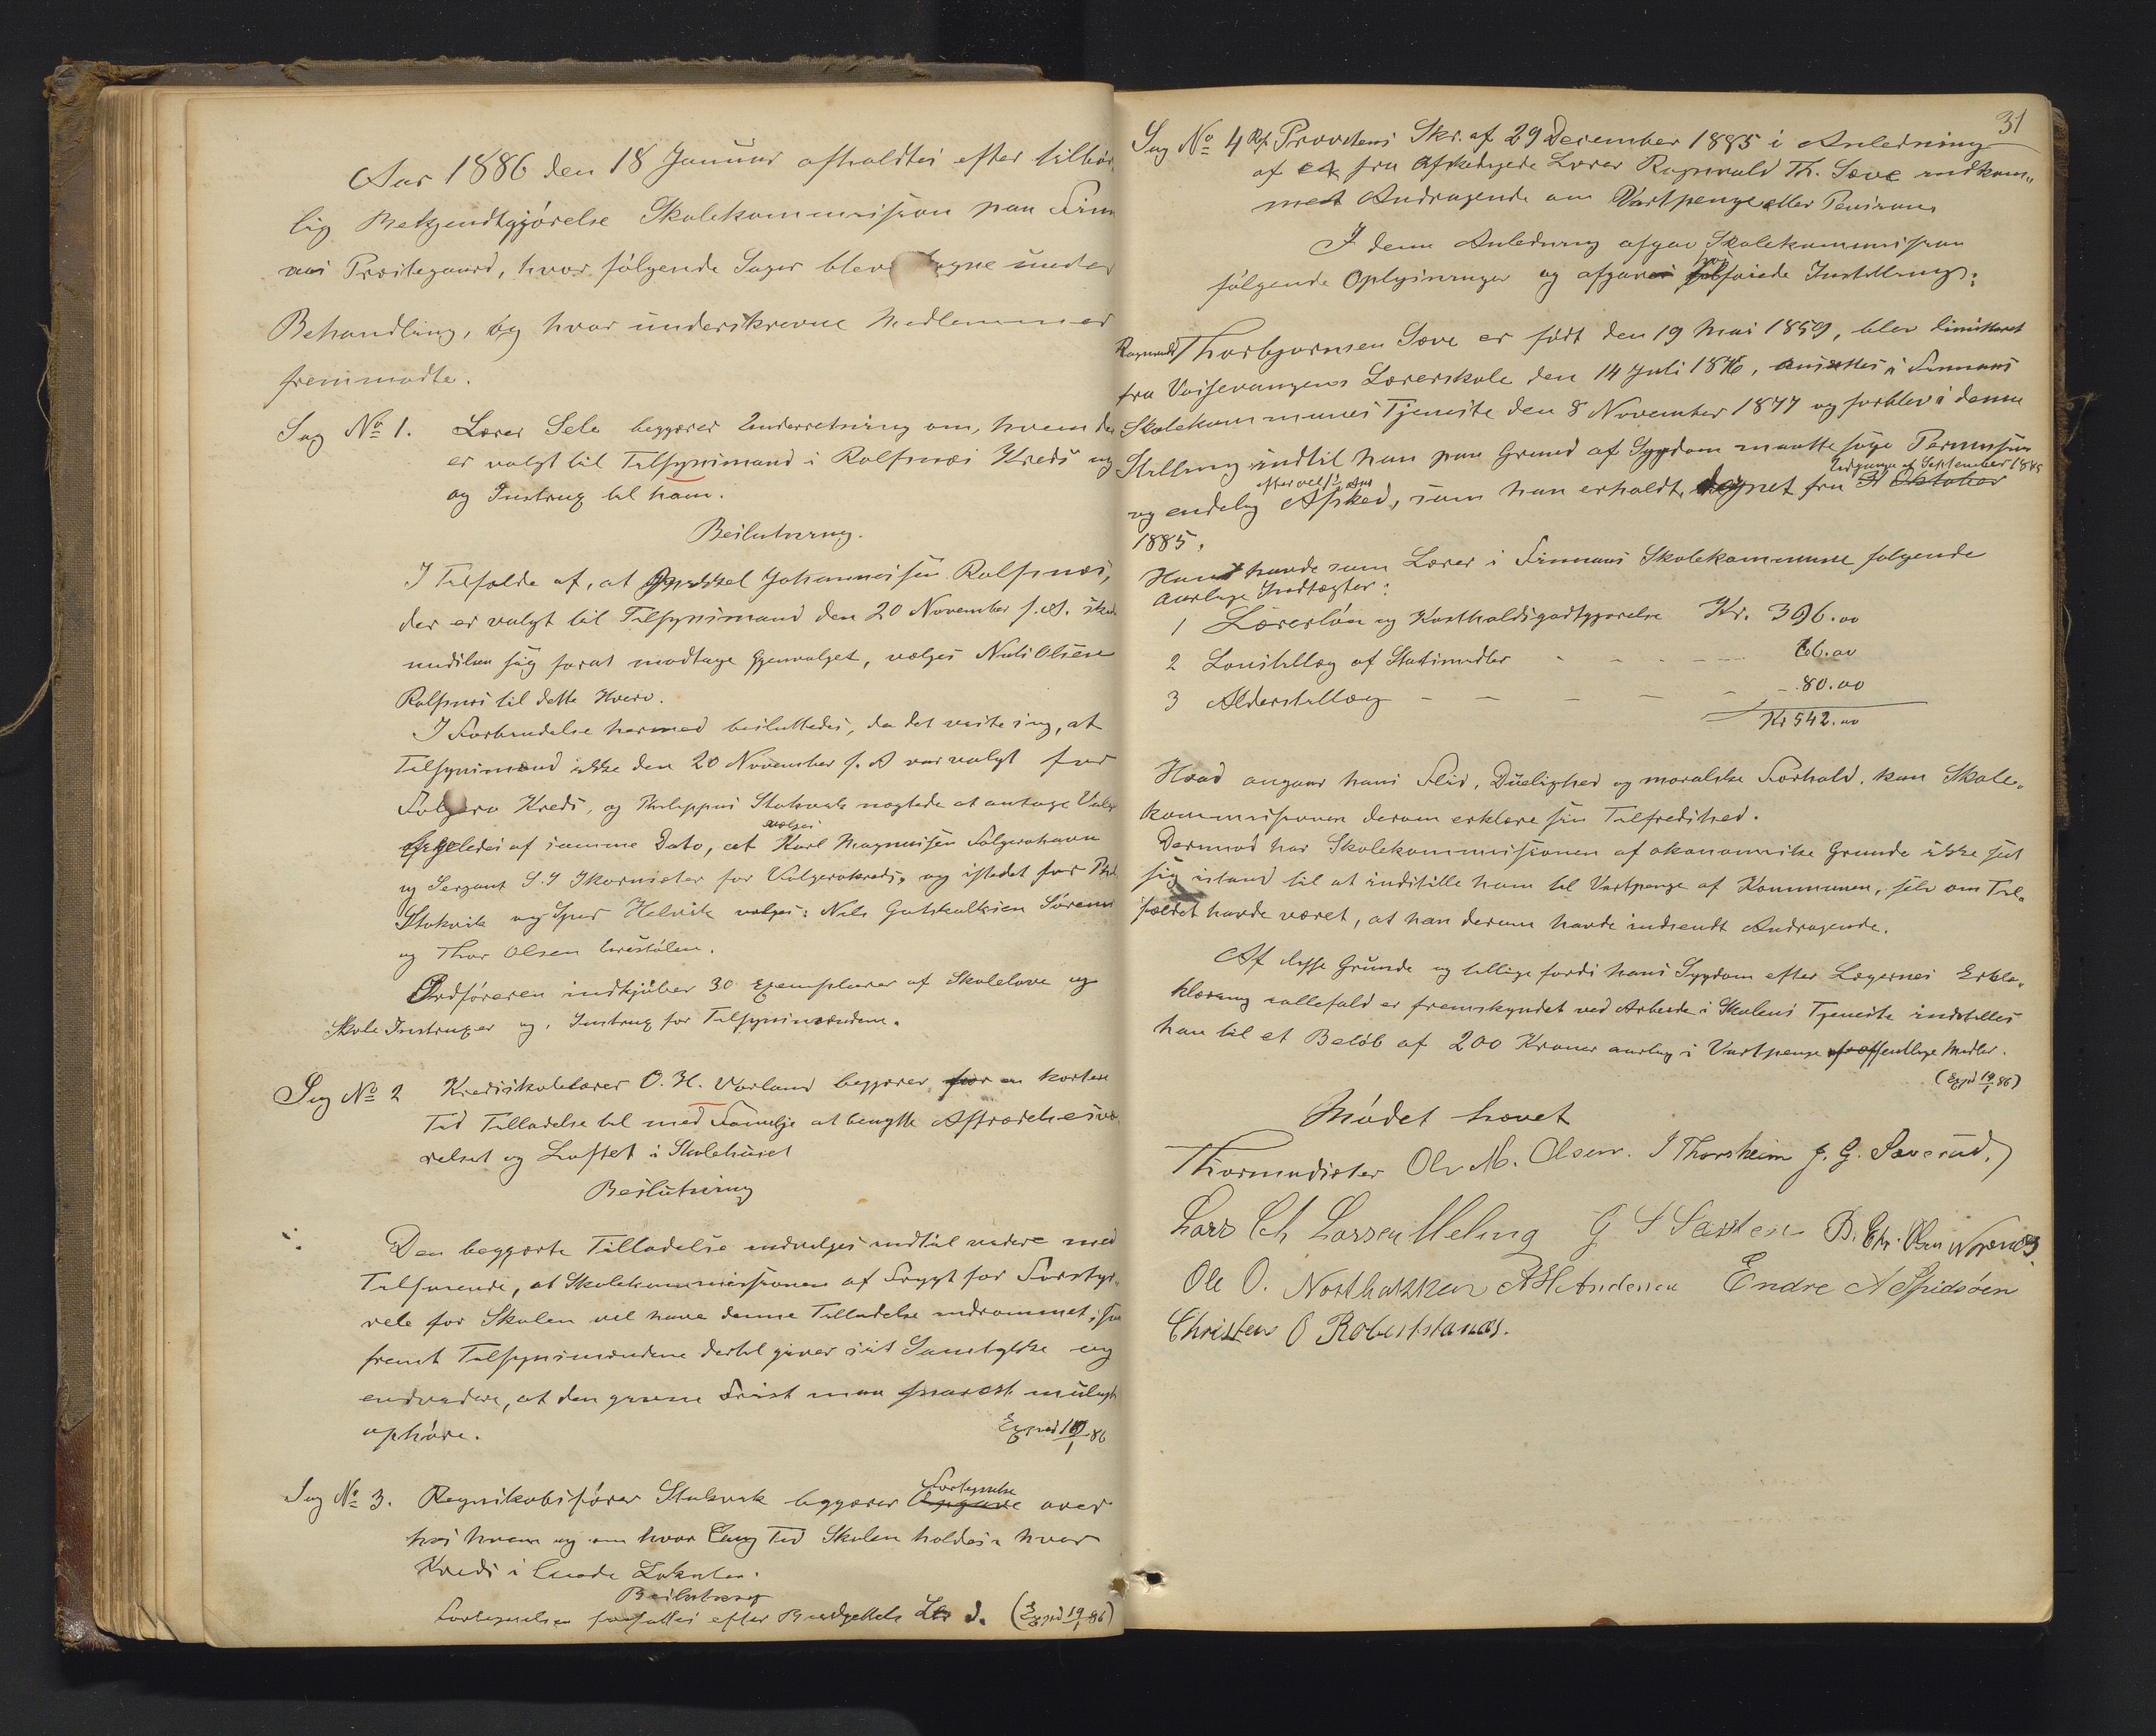 Aar 1886 den 18 Januar afholdtes efter tilbør
lig Bekjendtgjørelse Skolekommission paa Finn
aas Præstegaard, hvor følgende Sager bleve tagne under
Behandling, og hvor underskrevne Medlemmer
fremmødte.
Sag No 1. Lærer Sele begjærer Underretning om, hvem der
er valgt til Tilsynsmand i Rolfsnæs Kreds og
og Instrux til ham.
Beslutning.
I Tilfælde af, at Johannessen Rolfsnæs,
der er valgt til Tilsynsmand den 20 November f.A. skulde
undslaa sig forat modtage Gjenvalget, vælges Nils Olsen
Rolfsnæs til dette Hverv.
I Forbindelse hermed besluttedes, da det viste sig, at
Tilsynsmænd ikke den 20 November f.A var valgt for
Folgerø Kreds, og Philippus Stokvik nægtede at antage Valg
ligeledes af samme Dato, at vælges Karl Magnussen Folgerøhavn
og Sergant S. I for Folgerøkreds, og istedet for Ph.
Stokvik og Sjur Helvik vælges: Nils Gutshalksen Sørenes
og Thor Olsen
Ordføreren indkjøber 30 Exemplarer af Skolelove og
Skole Instruxer og Instrux for Tilsynsmændene.
Sag No 2 Kredsskolelærer O. H. Vorland begjærer for en kortere
Tid Tilladelse til med Familje at benytte Aftrædelsesvæ-
relset og Loftet i Skolehuset
Beslutning
Den begjærte Tilladelse indvilges indtil videre med
Tilføiende, at Skolekommissionen af Frygt for Forstyr-
relse for Skolen vil have denne Tilladelse indrømmet, saa
fremt Tilsynsmændene dertil giver sit Samtykke og
endvidere, at den givne Frist maa snarest muligt
ophøre.
Expd 19/1 86
Sag No 3. Regnskabsfører Stokvik begjærer Opgave Fortegnelse over
hos hvem og om hvor lang Tid Skolen holdes i hver
Kreds i leiede Lokaler.
Beslutning
Fortegnelsen forfattes efter Budgettets Litr d. (Expd 19/1 86)
31
Sag No 4 Provstens Skr. af 29 December 1885 i Anledning
af et fra afskedigede Lærer Ragnvald Th. Sæve indkom-
met Andragende om Vartpenge eller Pension
I den Anledning afgav Skolekommissionen
følgende Oplysninger og afgaves hosføiede Instilling:
Ragnvald Thorbjørnsen Sæve er født den 19 Mai 1859, blev dimitteret
fra Vossevangens Lærerskole den 14 Juli 1876, ansattes i Finnaas
Skolekommunes Tjeneste den 8 November 1877 og forblev i denne
Stilling indtil han paa Grund af Sygdom maatte søge Permission
og endelig efter vel 1/2 Aar Afsked, som han erholdt, regnet fra Udgangen af September 1885 1 Oktober
1885.
Han havde som Lærer i Finnaas Skolekommune følgende
aarlige Indtægter:
1 Lærerløn og Kostholdsgodtgjørelse Kr. 396.00
2 Lønstillæg af Statsmidler - - - - 66.00
3 Alderstillæg - - - - - - 80.00
Kr 542.00
Hvad angaar hans Flid, Duelighed og moralske Forhold, kan Skole-
kommissionen derom erklære sin Tilfredshed.
Dermod har Skolekommissionen af økonomiske Grunde ikke set
sig istand til at indstille ham til Vartpenge af Kommunen, selv om Til-
fældet havde været, at han derom havde indsendt Andragende.
Af disse Grunde og tillige fordi hans Sygdom efter Lægernes Erklæ-
klæring iallefald er fremskyndet ved Arbeide i Skolens Tjeneste indstilles
han til et Beløb af 200 Kroner aarlig i Vartpenge af offentlige Midler.
(Expd 19/1 86)
Mødet hævet
Thormodsæter Ole M. Olsen. I Thorsheim J. G. Sæverud.
Lars Ch Larsen Meling G S Sæsten B. Chr. Olsen Nornes
Ole O. Northakken A H Andersen Endre A Spidsøen
Christen O Robertstanæs.